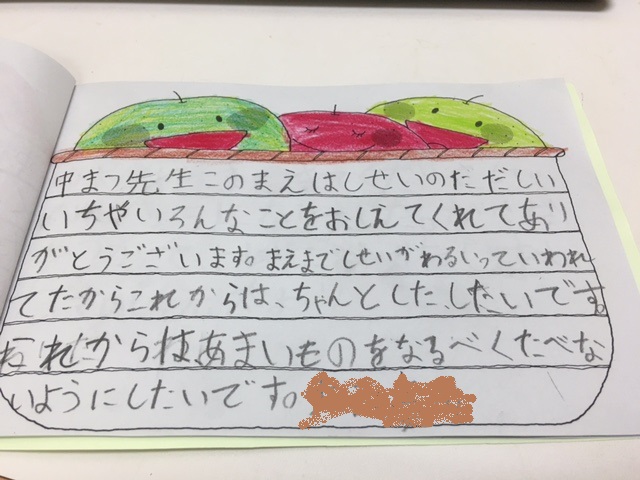 中まつ先生このまえはしせいのただしい
いちやいろんなことをおしえてくれてあり
がとうございます。まえまでしせいがわるいっていわれ
てたからこれからは、ちゃんとしたしたいです。
これからはあまいものをなるべくたべな
いようにしたいです。